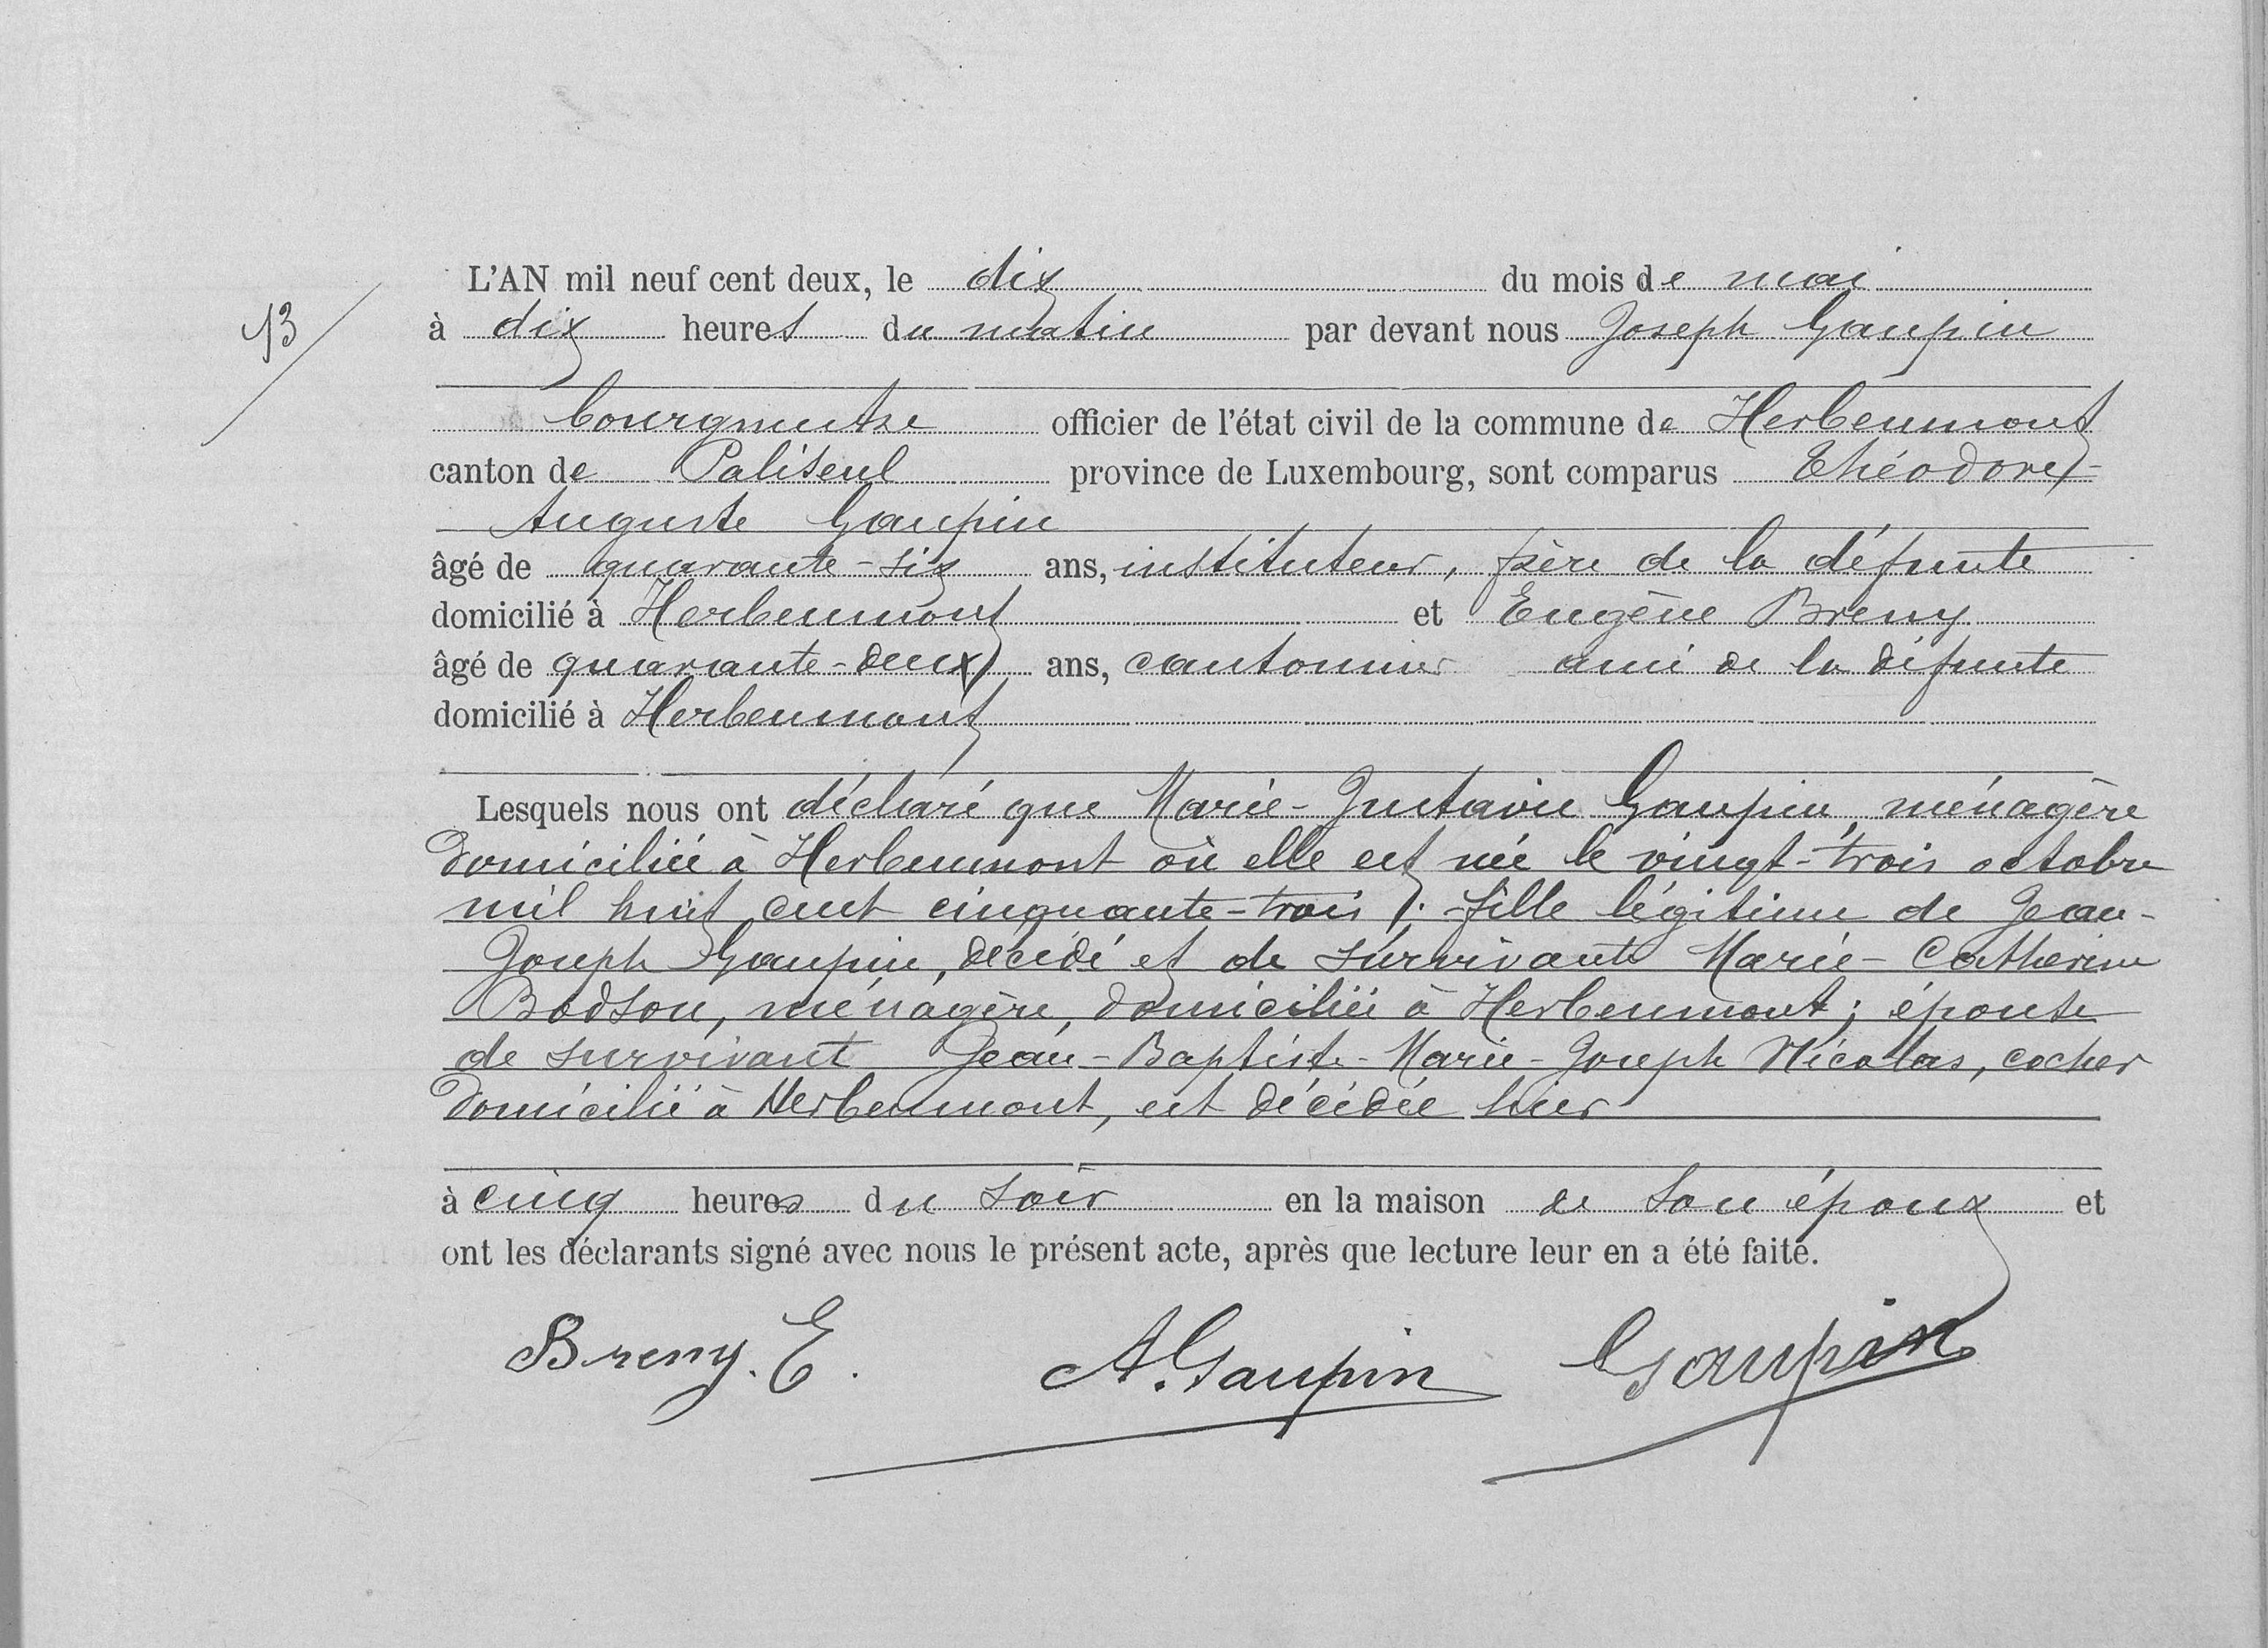 L'AN mil neuf cent deux, le dix du mois de mai
13
à dix heures du matin par devant nous Joseph Gaupin
bourgmestre officier de l'état civil de la commune de Herbeumont
canton de Paliseul province de Luxembourg, sont comparus Théodore-
Auguste Gaupin
âgé de quarante-six ans, instituteur, frère de la défunte
domicilié à Herbeumont et Eugène Breny
âgé de quarante-deux ans, cantonnier ami de la défunte
domicilié à Herbeumont
Lesquels nous ont déclaré que Marie-Gustavie Gaupin, ménagère
domiciliée à Herbeumont où elle est née le vingt-trois octobre
mil huit cent cinquante-trois ; fille légitime de Jean-
Joseph Gaupin, décédé et de survivante Marie-Catherine
Bodson, ménagère, domiciliée à Herbeumont; épouse
de survivant Jean-Baptiste-Marie-Joseph Nicolas, cocher
domicilié à Herbeumont, est décédée hier
à cinq heures du soir en la maison de son époux et
ont les déclarants signé avec nous le présent acte, après que lecture leur en a été faite.
Breny. E. A. Gaupin Gaupin